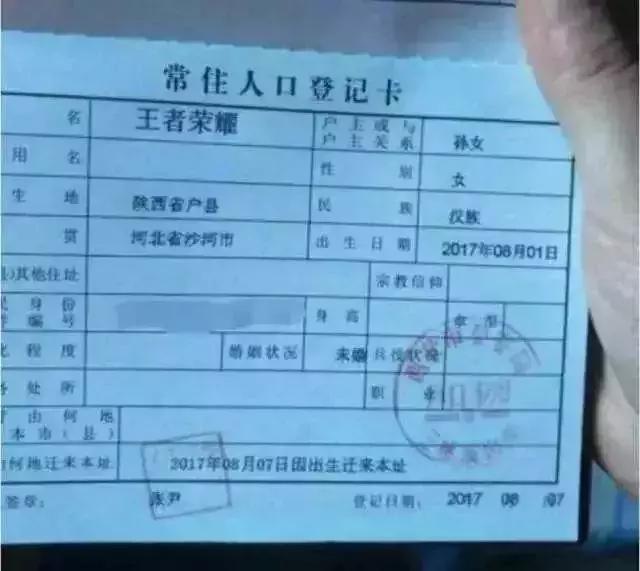 常住人口登记卡
名 王者荣耀 户主或与户主关系 孙女
用名 性别 女
生地 陕西省户县 民族 汉族
贯 河北省沙河市 出生日期 2017年08月01日
县)其他住址 宗教信仰
民身份 身高 血型
件编号
化程度 婚姻状况 未婚 兵役状况
务处所 职业
由何地
本市(县)
由何地迁来本址 2017年08月07日因出生迁来本址
签章: 张尹 登记日期: 2017 08 07